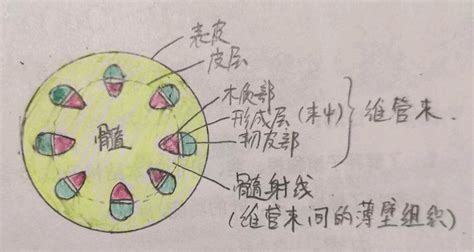 表皮
皮层
木质部
形成层(束中)
韧皮部
维管束
髓
髓射线
(维管束间的薄壁组织)